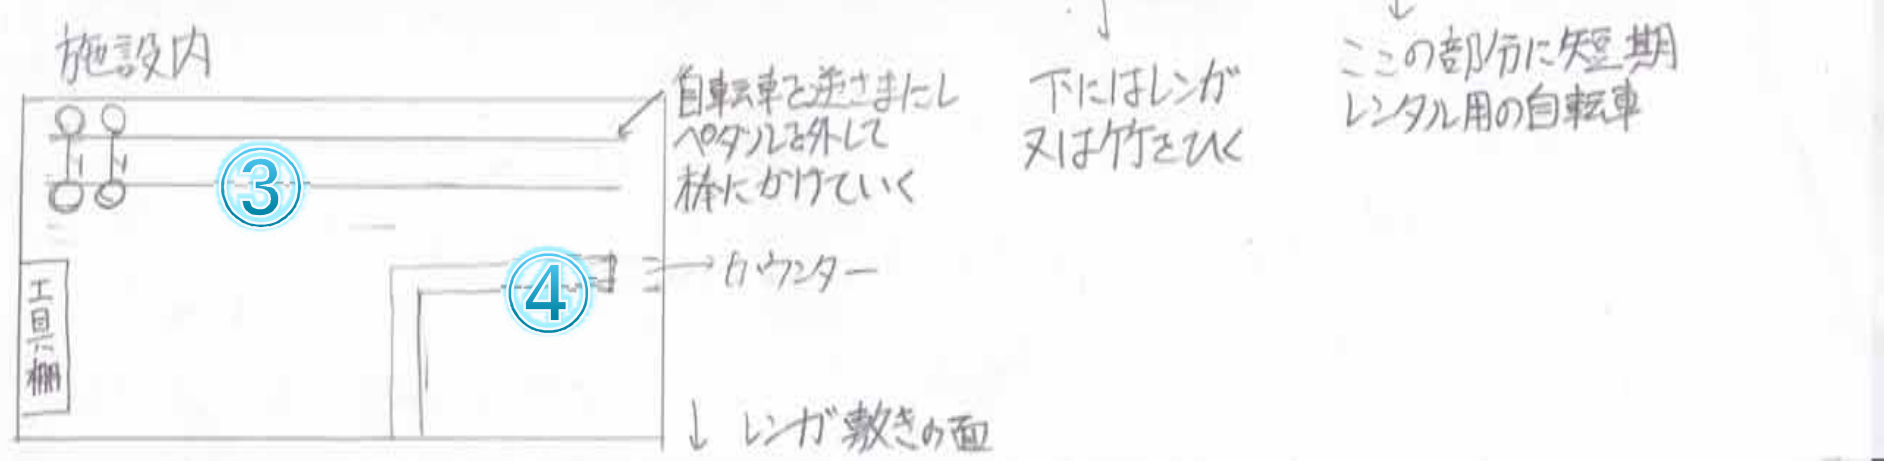 施設内
自転車を逆さまにし
ペダルを外して
棒にかけていく
③
④
カウンター
工具棚
↓ レンガ敷きの面
↓
下にはレンガ
又は竹をひく
↓
ここの部分に短期
レンタル用の自転車